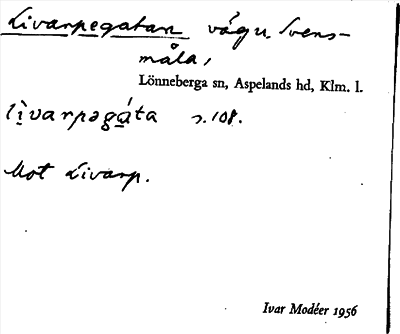 Livarpegatan vägu. Svens-
måla,
Lönneberga sn, Aspelands hd, Klm. l.
lìvarpəgáta s. 108.
Mot Livarp.
Ivar Modéer 1956